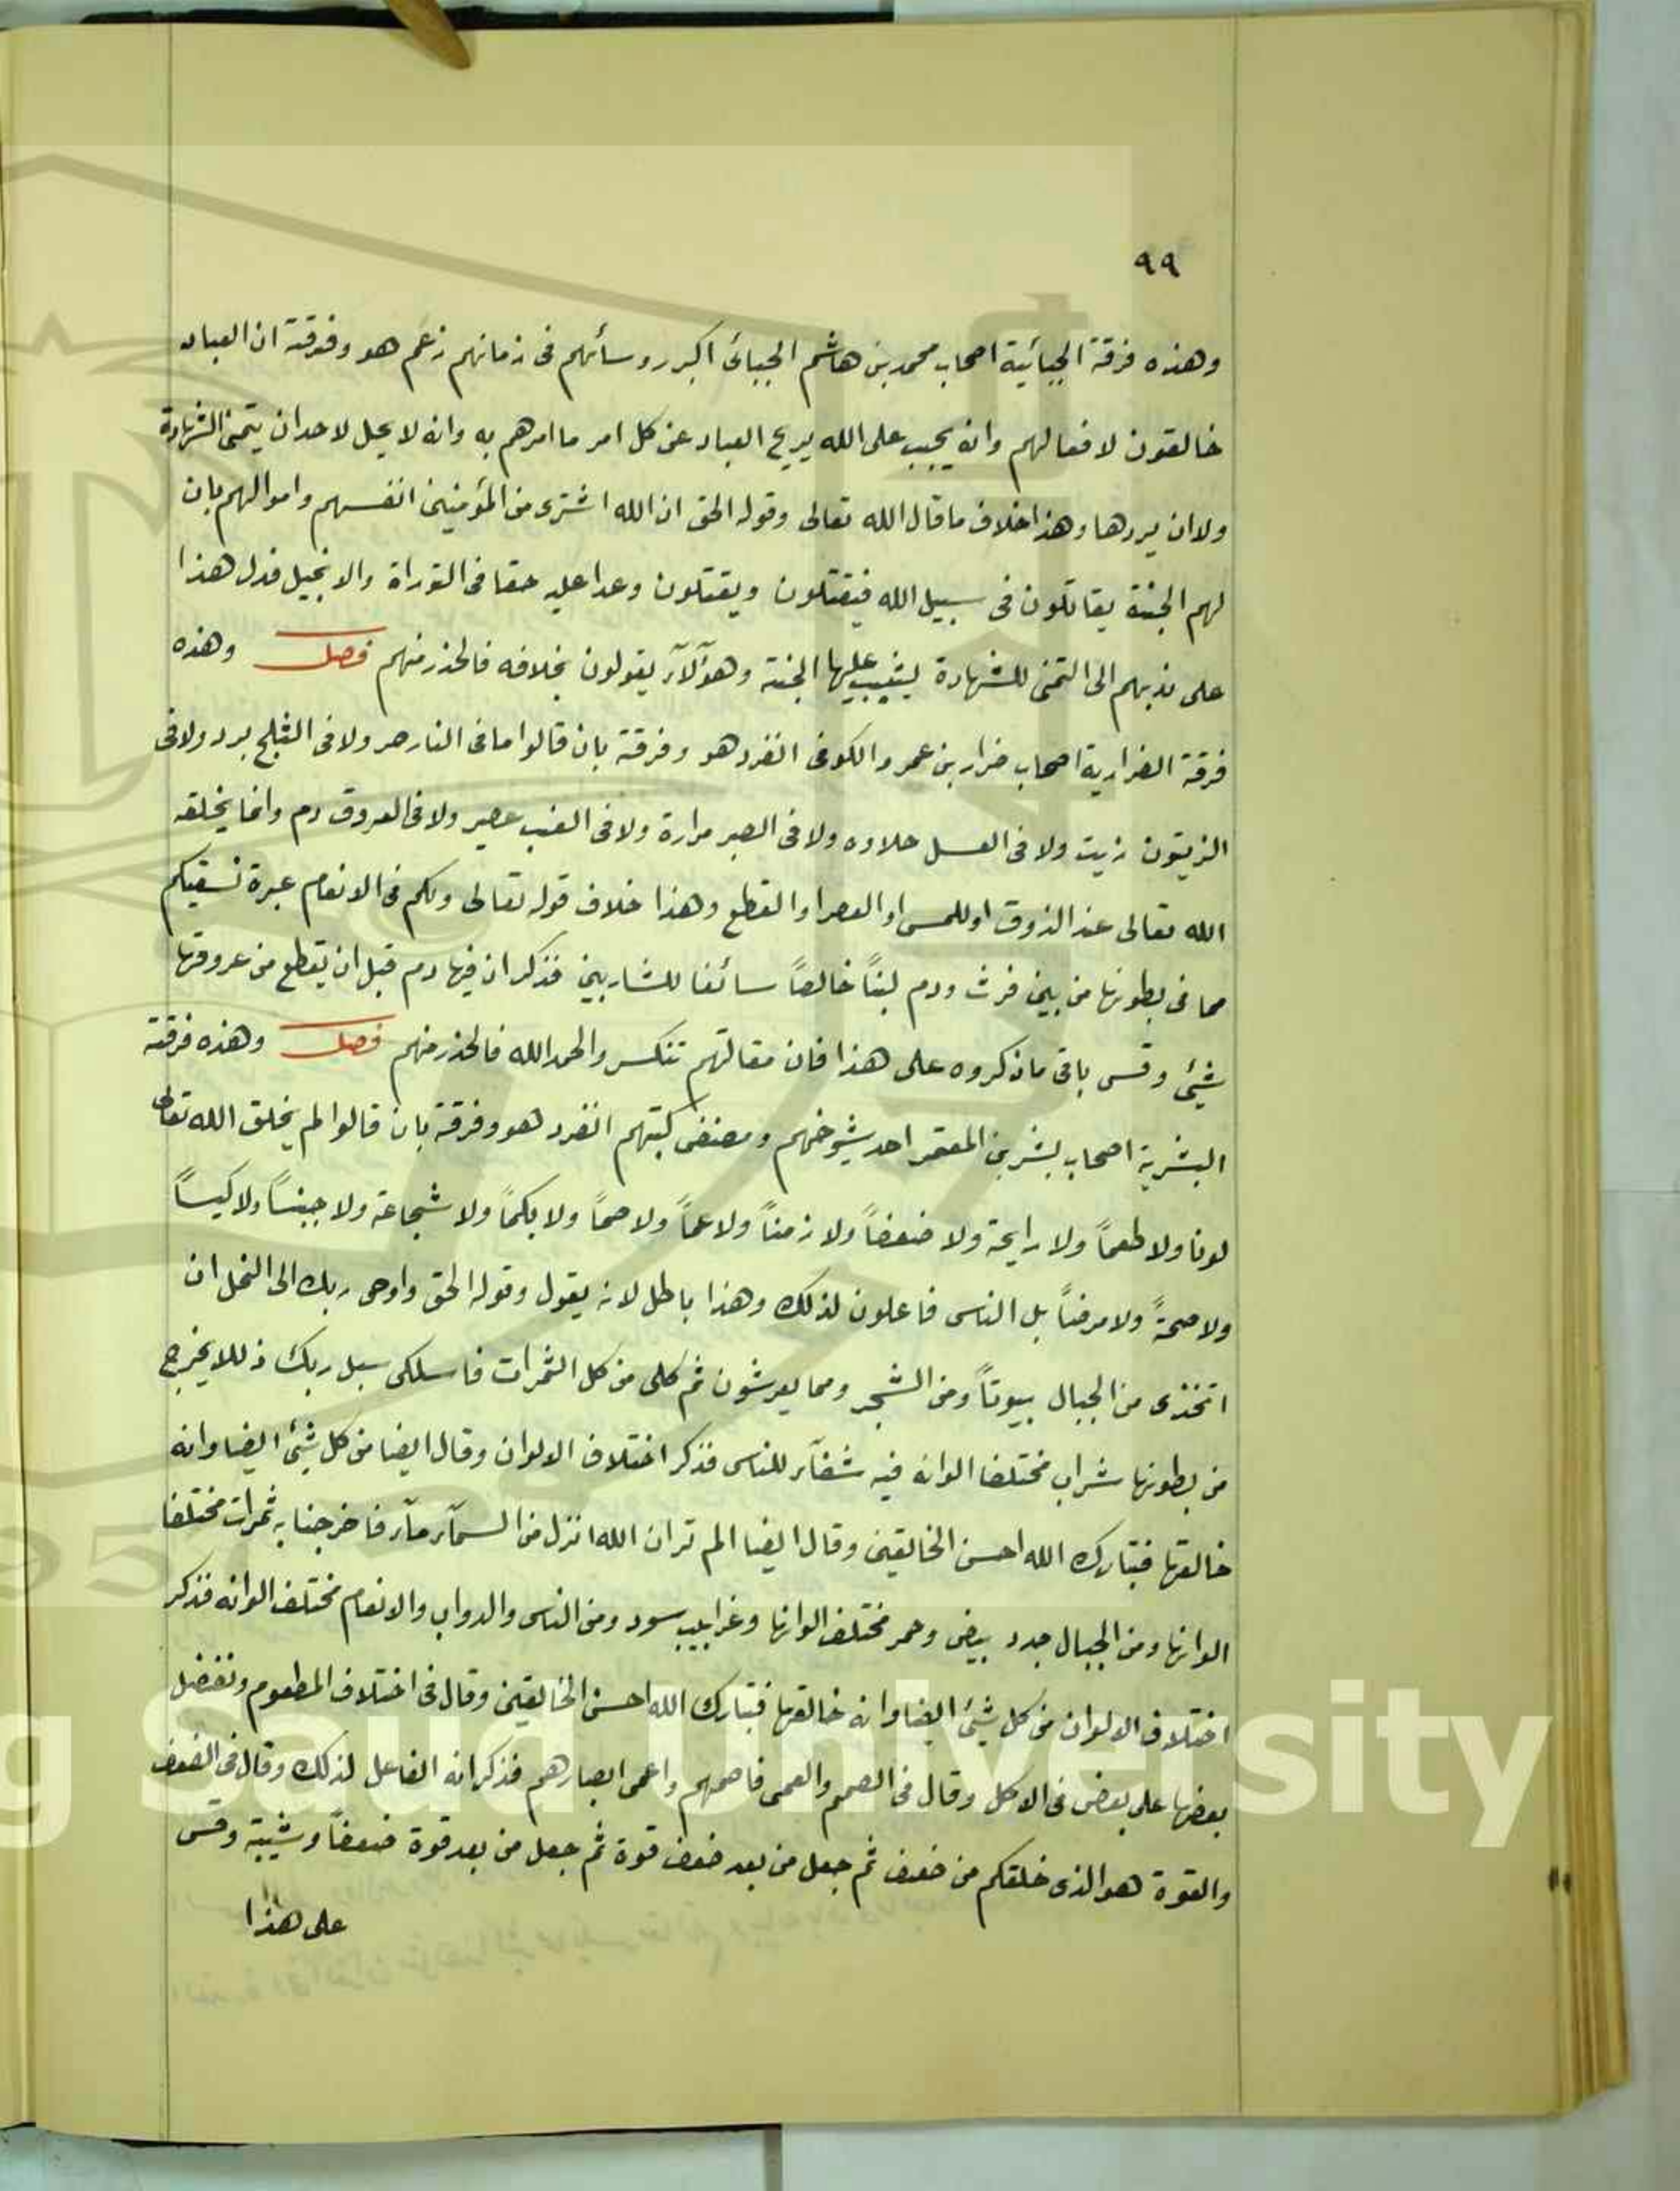 ٩٩
وهذه فرقة الجبائية اصحاب محمد بن هاشم الجبائى اكبر روسائهم فى زمانهم زعم هو وفرقة ان العباد
خالقون لافعالهم وانه يجب على الله يريح العباد عن كل امر ما امرهم به وانه لا يحل لاحد ان يتمنى الشهادة
ولا ان يردها وهذا خلاف ما قال الله تعالى وقوله الحق ان الله اشترى من المؤمنين انفسهم واموالهم بان
لهم الجنة يقاتلون فى سبيل الله فيقتلون ويقتلون وعدا عليه حقا فى التوراة والانجيل فدل هذا
على ندبهم الى التمنى للشهادة ليثيب عليها الجنة وهؤلآء يقولون بخلافه فالحذر منهم فصل وهذه
فرقة الضرارية اصحاب ضرار بن عمرو الكوفى انفرد هو وفرقة بان قالوا ما فى النار حر ولا فى الثلج برد ولا فى
الزيتون زيت ولا فى العسل حلاوه ولا فى الصبر مرارة ولا فى العنب عصير ولا فى العروق دم وانما يخلقه
الله تعالى عند الذوق او للمس او العصر او القطع وهذا خلاف قوله تعالى ولكم فى الانعام عبرة نسقيكم
مما فى بطونها من بين فرث ودم لبناً خالصاً سائغا للشاربين فذكر ان فيها دم قبل ان يقطع من عروقها
شيئ وقس باقى ما ذكروه على هذا فان مقالتهم تنكسر والحمد الله فالحذر منهم فصل وهذه فرقة
البشرية اصحاب بشر بن المعتمر احد شيوخهم ومصنفى كتبهم انفرد هو وفرقة بان قالوا لم يخلق الله تعالى
لونا ولا طعماً ولا رايحة ولا ضعفاً ولا زمناً ولا عماً ولا صماً ولا بكماً ولا شجاعة ولا جبنساً ولا كيساً
ولا صحةً ولا مرضاً بل الناس فاعلون لذلك وهذا باطل لانه يقول وقوله الحق واوحى ربك الى النحل ان
اتخذى من الجبال بيوتاً ومن الشجر ومما يعرشون ثم كلى من كل الثمرات فاسلكى سبل ربك ذللا يخرج
من بطونها شراب مختلفا الوانه فيه شفآء للناس فذكر اختلاف الالوان وقال ايضا من كل شيئ ايضا وانه
خالقها فتبارك الله احسن الخالقين وقال ايضا الم تر ان الله انزل من السمآء مآء فاخرجنا به ثمرات مختلفا
الوانها ومن الجبال جدد بيض وحمر مختلف الوانها وغرابيب سود ومن الناس والدواب والانعام مختلف الوانه فذكر
اختلاف الالوان من كل شيئ ايضا وانه خالقها فتبارك الله احسن الخالقين وقال فى اختلاف المطعوم ونفضل
بعضها على بعض فى الاكل وقال فى الصمم والعمى فاصمهم واعمى ابصارهم فذكر انه الفاعل لذلك وقال فى الضعف
والقوة هو الذى خلقكم من ضعف ثم جعل من بعد ضعف قوة ثم جعل من بعد قوة ضعفاً وشيبة وقس
على هذا
g Saud University